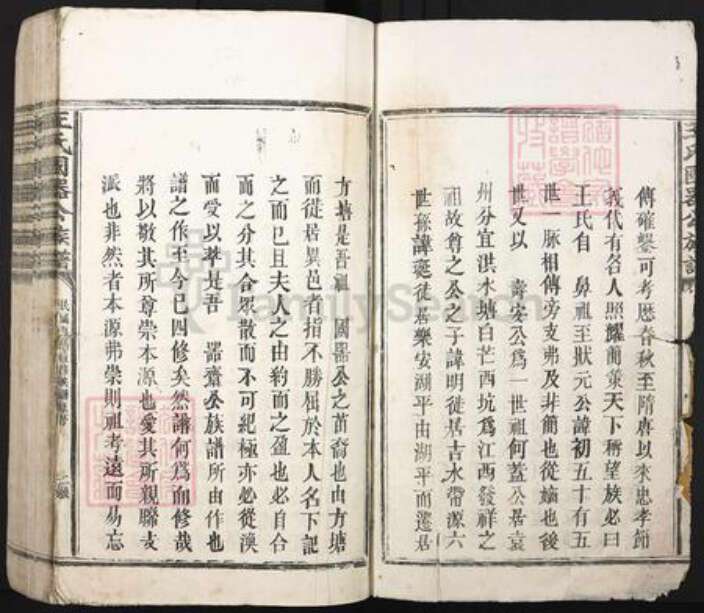 傳確鑿可考歷春秋至隋唐以來忠孝節
義代有名人照耀簡策天下稱望族必曰
王氏自 鼻祖至狀元公諱初五十有五
世一脈相傳旁支弗及非簡也從嫡也後
世又以 壽安公為一世祖何蓋公居袁
州分宜洪水塘白芒西坑為江西發祥之
祖故尊之公之子諱明徙居吉水帶源六
世孫諱 徙居樂安湖平由湖平而遷居
方塘是吾祖 國器公之苗裔也由方塘
而徙居異邑者指不勝屈於本人名下記
之而已且夫人之由約而之盈也必自合
而之分其合眾散而不可紀極亦必從渙
而受以萃是吾 器齋公族譜所由作也
譜之作至今已四修矣然譜何為而修哉
將以敬其所尊崇本源也愛其所親聯支
派也非然者本源弗崇則祖考遠而易忘
王氏國器公族譜
FamilySearch